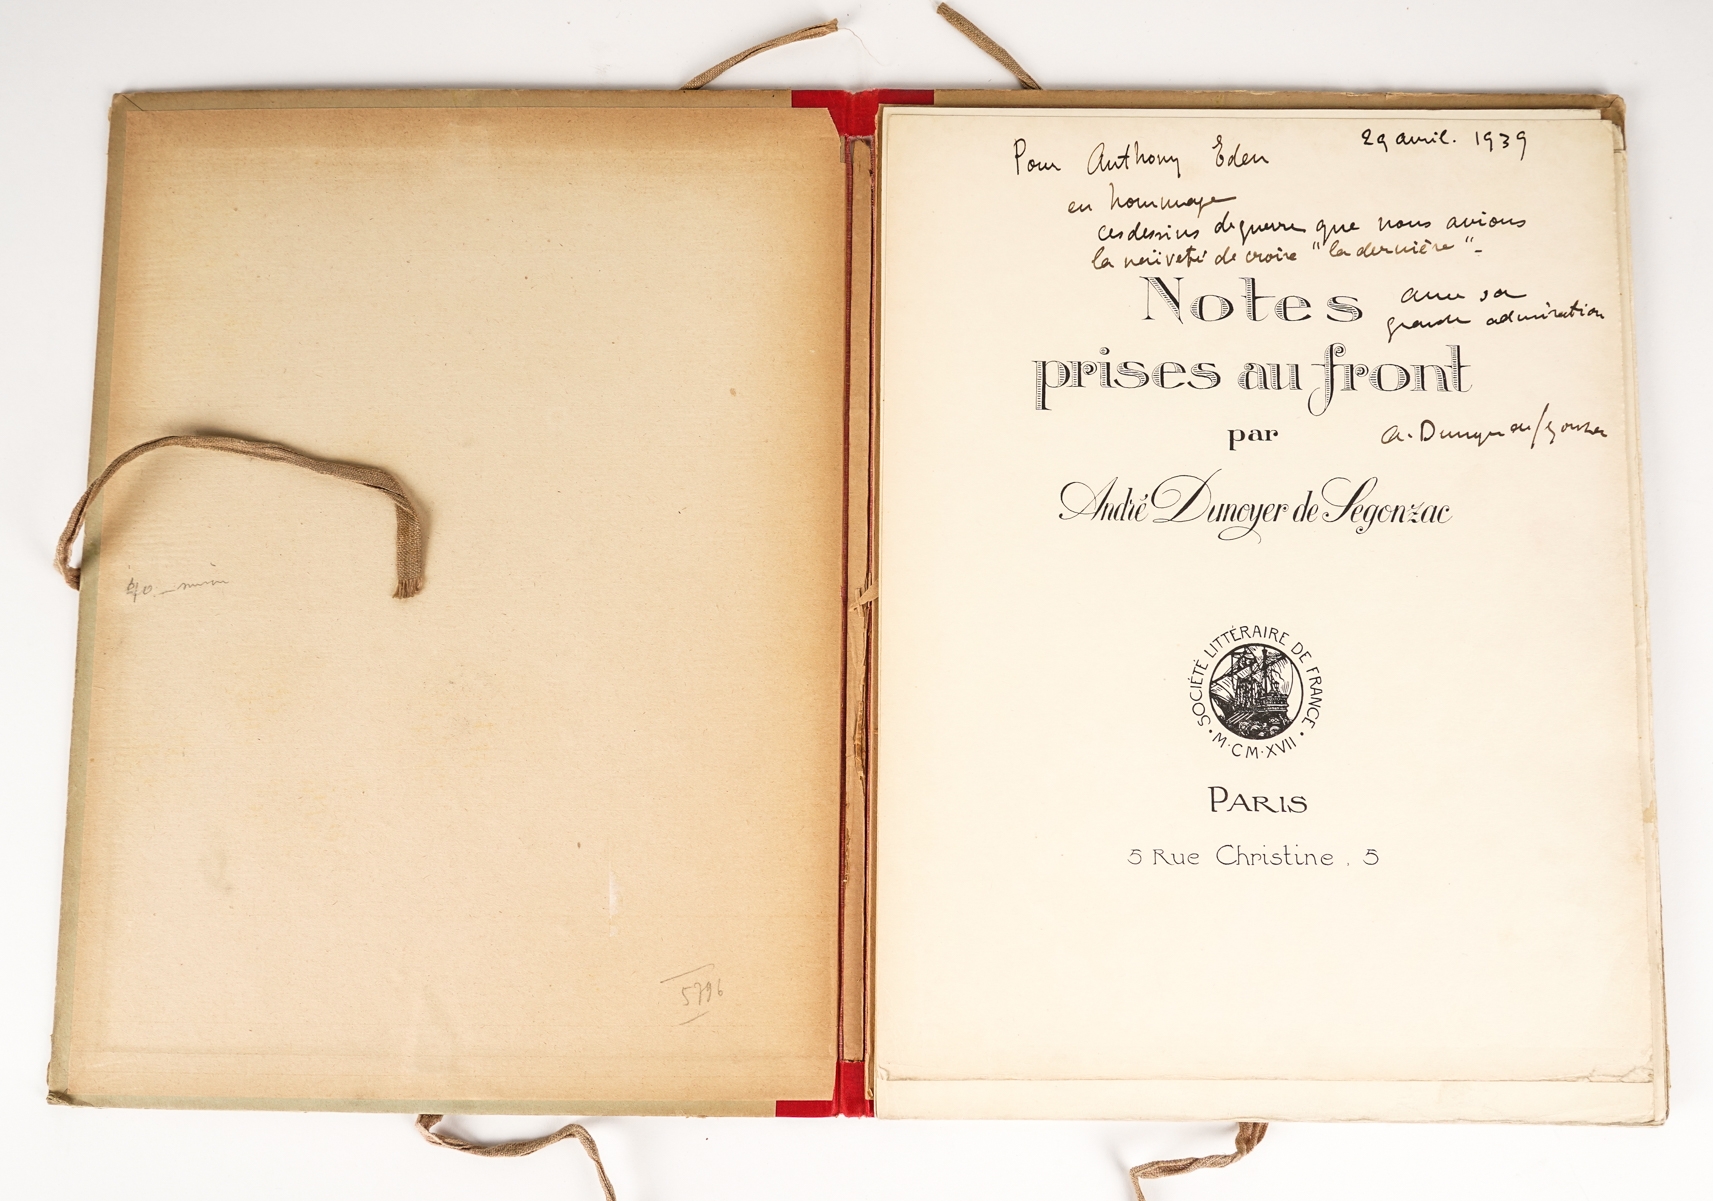 29 avril. 1939
Pour Anthony Eden
en hommage
ces dessins de guerre que nous avions
la naïveté de croire "la dernière"-
avec sa
grande admiration
Notes
prises au front
par
A. Dunoyer de Segonzac
André Dunoyer de Segonzac
SOCIÉTÉ LITTÉRAIRE DE FRANCE
• M·CM·XVII •
PARIS
5 Rue Christine, 5
5796